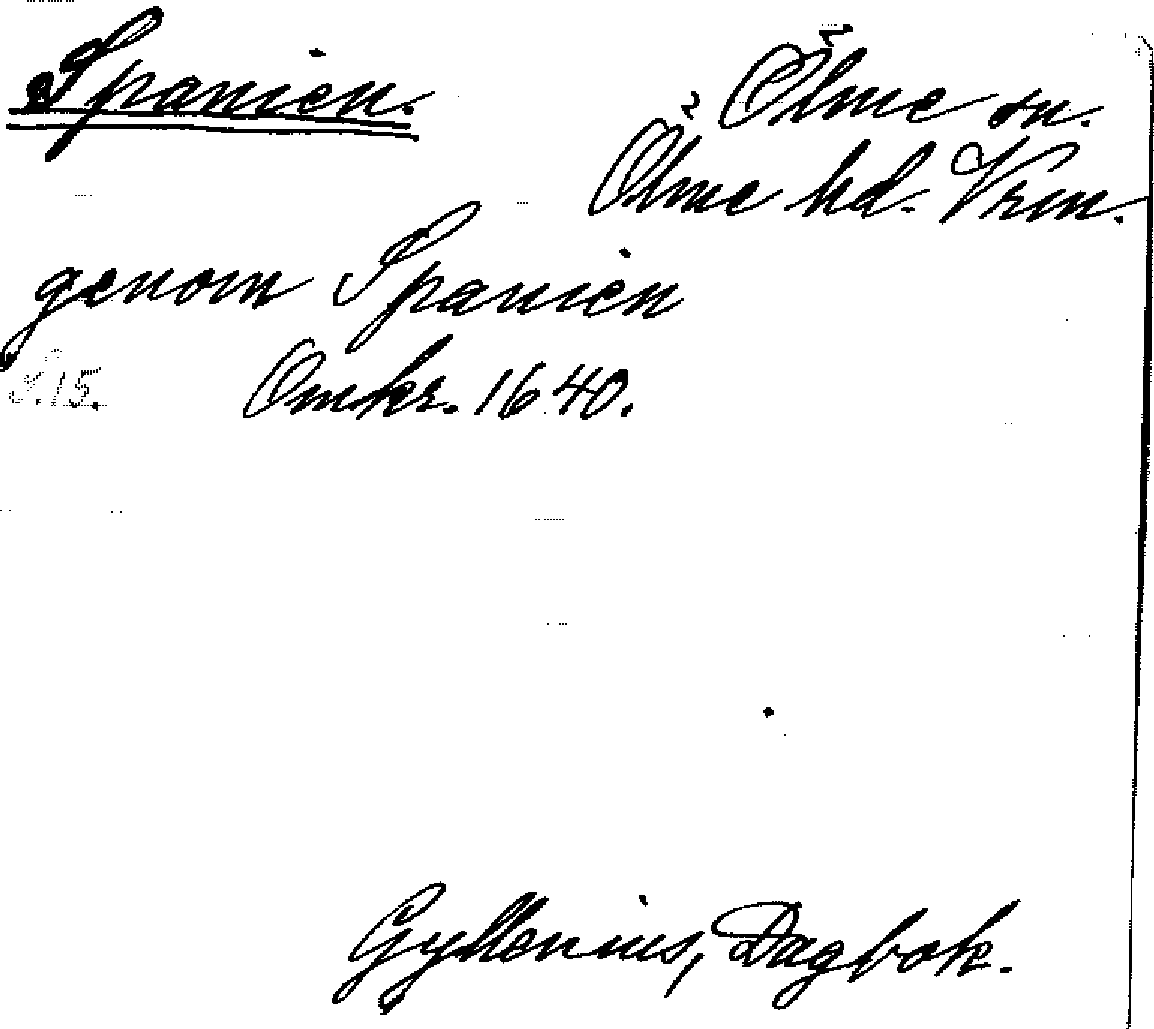 Spanien.
Ölme sn.
Ölme hd. Vrm.
genom Spanien
S. 15. Omkr. 1640.
Gyllenius, Dagbok.